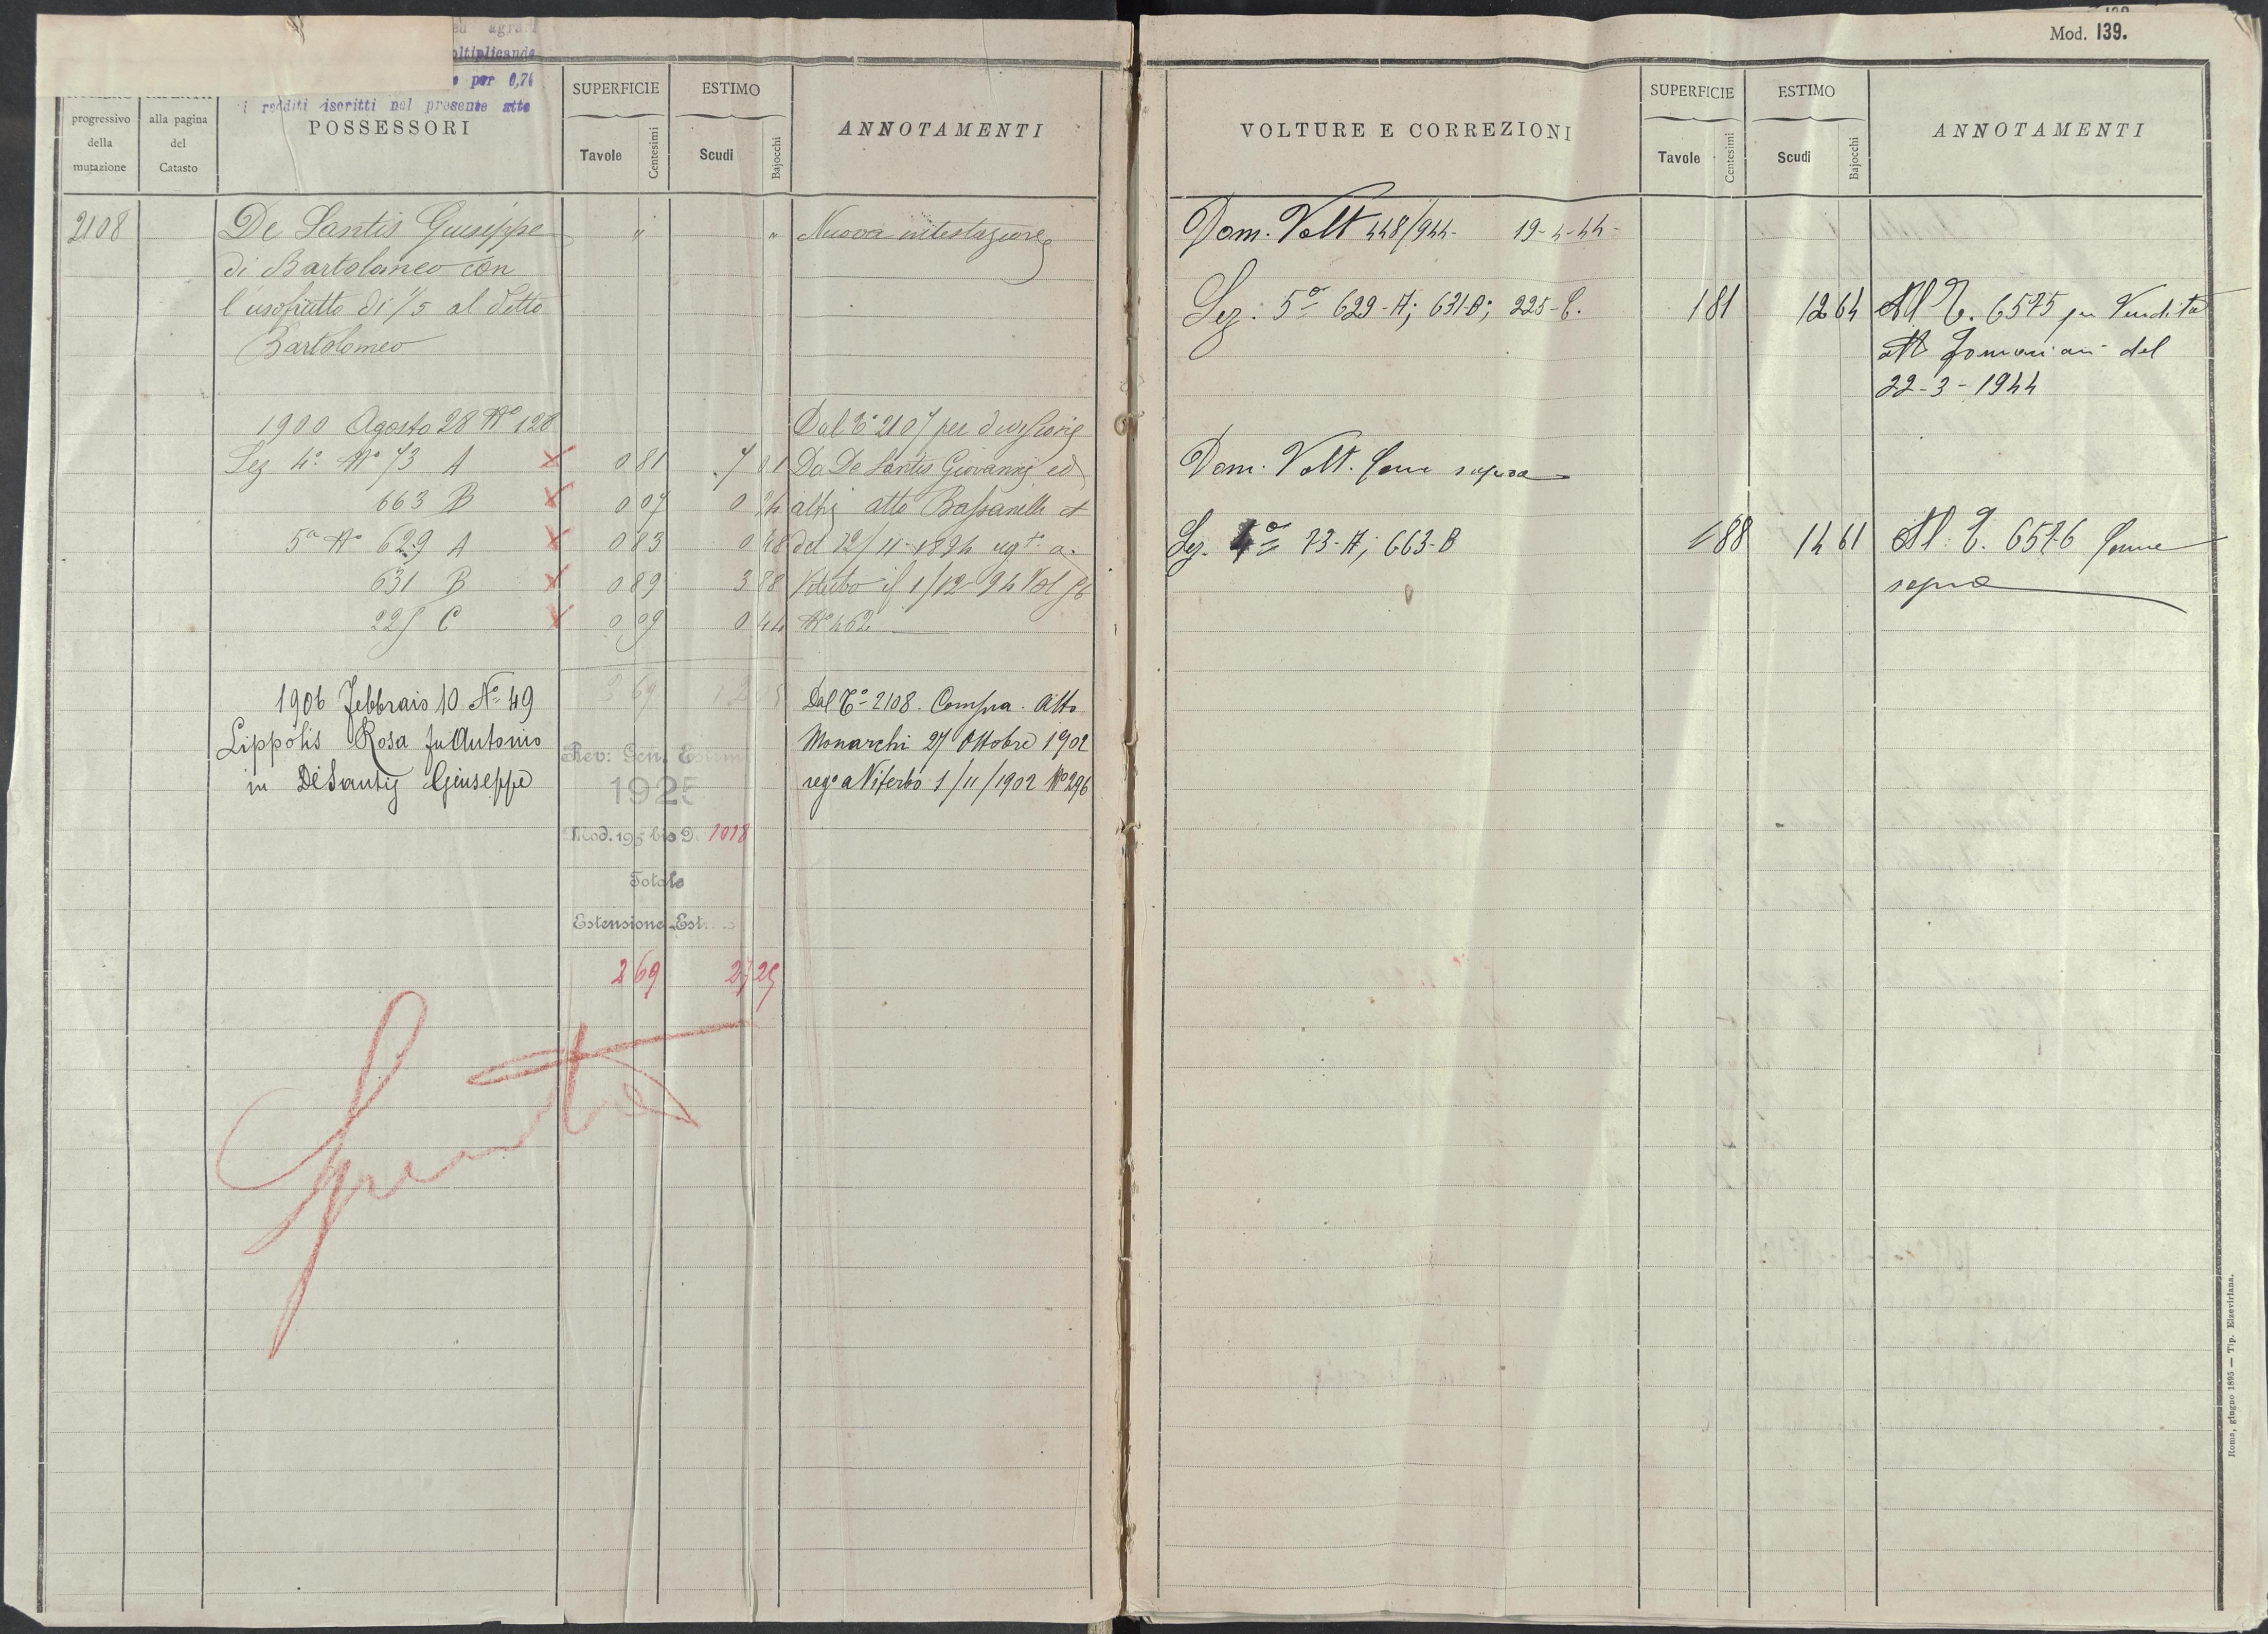 ed agrari
oltiplicando
per 0,74
i redditi iscritti nel presente atto
progressivo della mutazione
alla pagina del Catasto
POSSESSORI
SUPERFICIE
Tavole Centesimi
ESTIMO
Scudi Bajocchi
ANNOTAMENTI
2108 De Santis Giuseppe " " Nuova intestazione
di Bartolomeo con
l'usofrutto di 1/5 al detto
Bartolomeo
1900 Agosto 28 No 128 Dal To 2107 per divisione
Sez 4a No 73 A 0 81 7 01 Da De Santis Giovanni ed
663 B 0 07 0 24 altri atto Bassanelli
5a No 629 A 0 83 0 48 del 12/11-1894 regto a
631 B 0 89 3 88 Viterbo il 1/12-94 Vol 56
225 C 0 09 0 44 No 462
2 69
1906 Febbraio 10 No 49 Dal To 2108. Compra. Atto
Lippolis Rosa fu Antonio Monarchi 27 Ottobre 1902
in De Santis Giuseppe rego a Viterbo 1/11/1902 No 296
Rev: Gen. Estimi
1925
Mod. 195 bis D. 1018
Totale
Estensione Est
2 69 27 25
Mod. 139.
VOLTURE E CORREZIONI
SUPERFICIE
Tavole Centesimi
ESTIMO
Scudi Bajocchi
ANNOTAMENTI
Dom. Volt 448/944- 19-4-44-
Sez. 5a 629-A; 631-B; 225-C. 1 81 12 64 Al T. 6575 per Vendita
att del
22-3-1944
Dom. Volt. Come sopra
Sez. 4a 73-A; 663-B 88 14 61 Al T. 6576 Come
sopra
Roma, giugno 1895 — Tip. Elzeviriana.